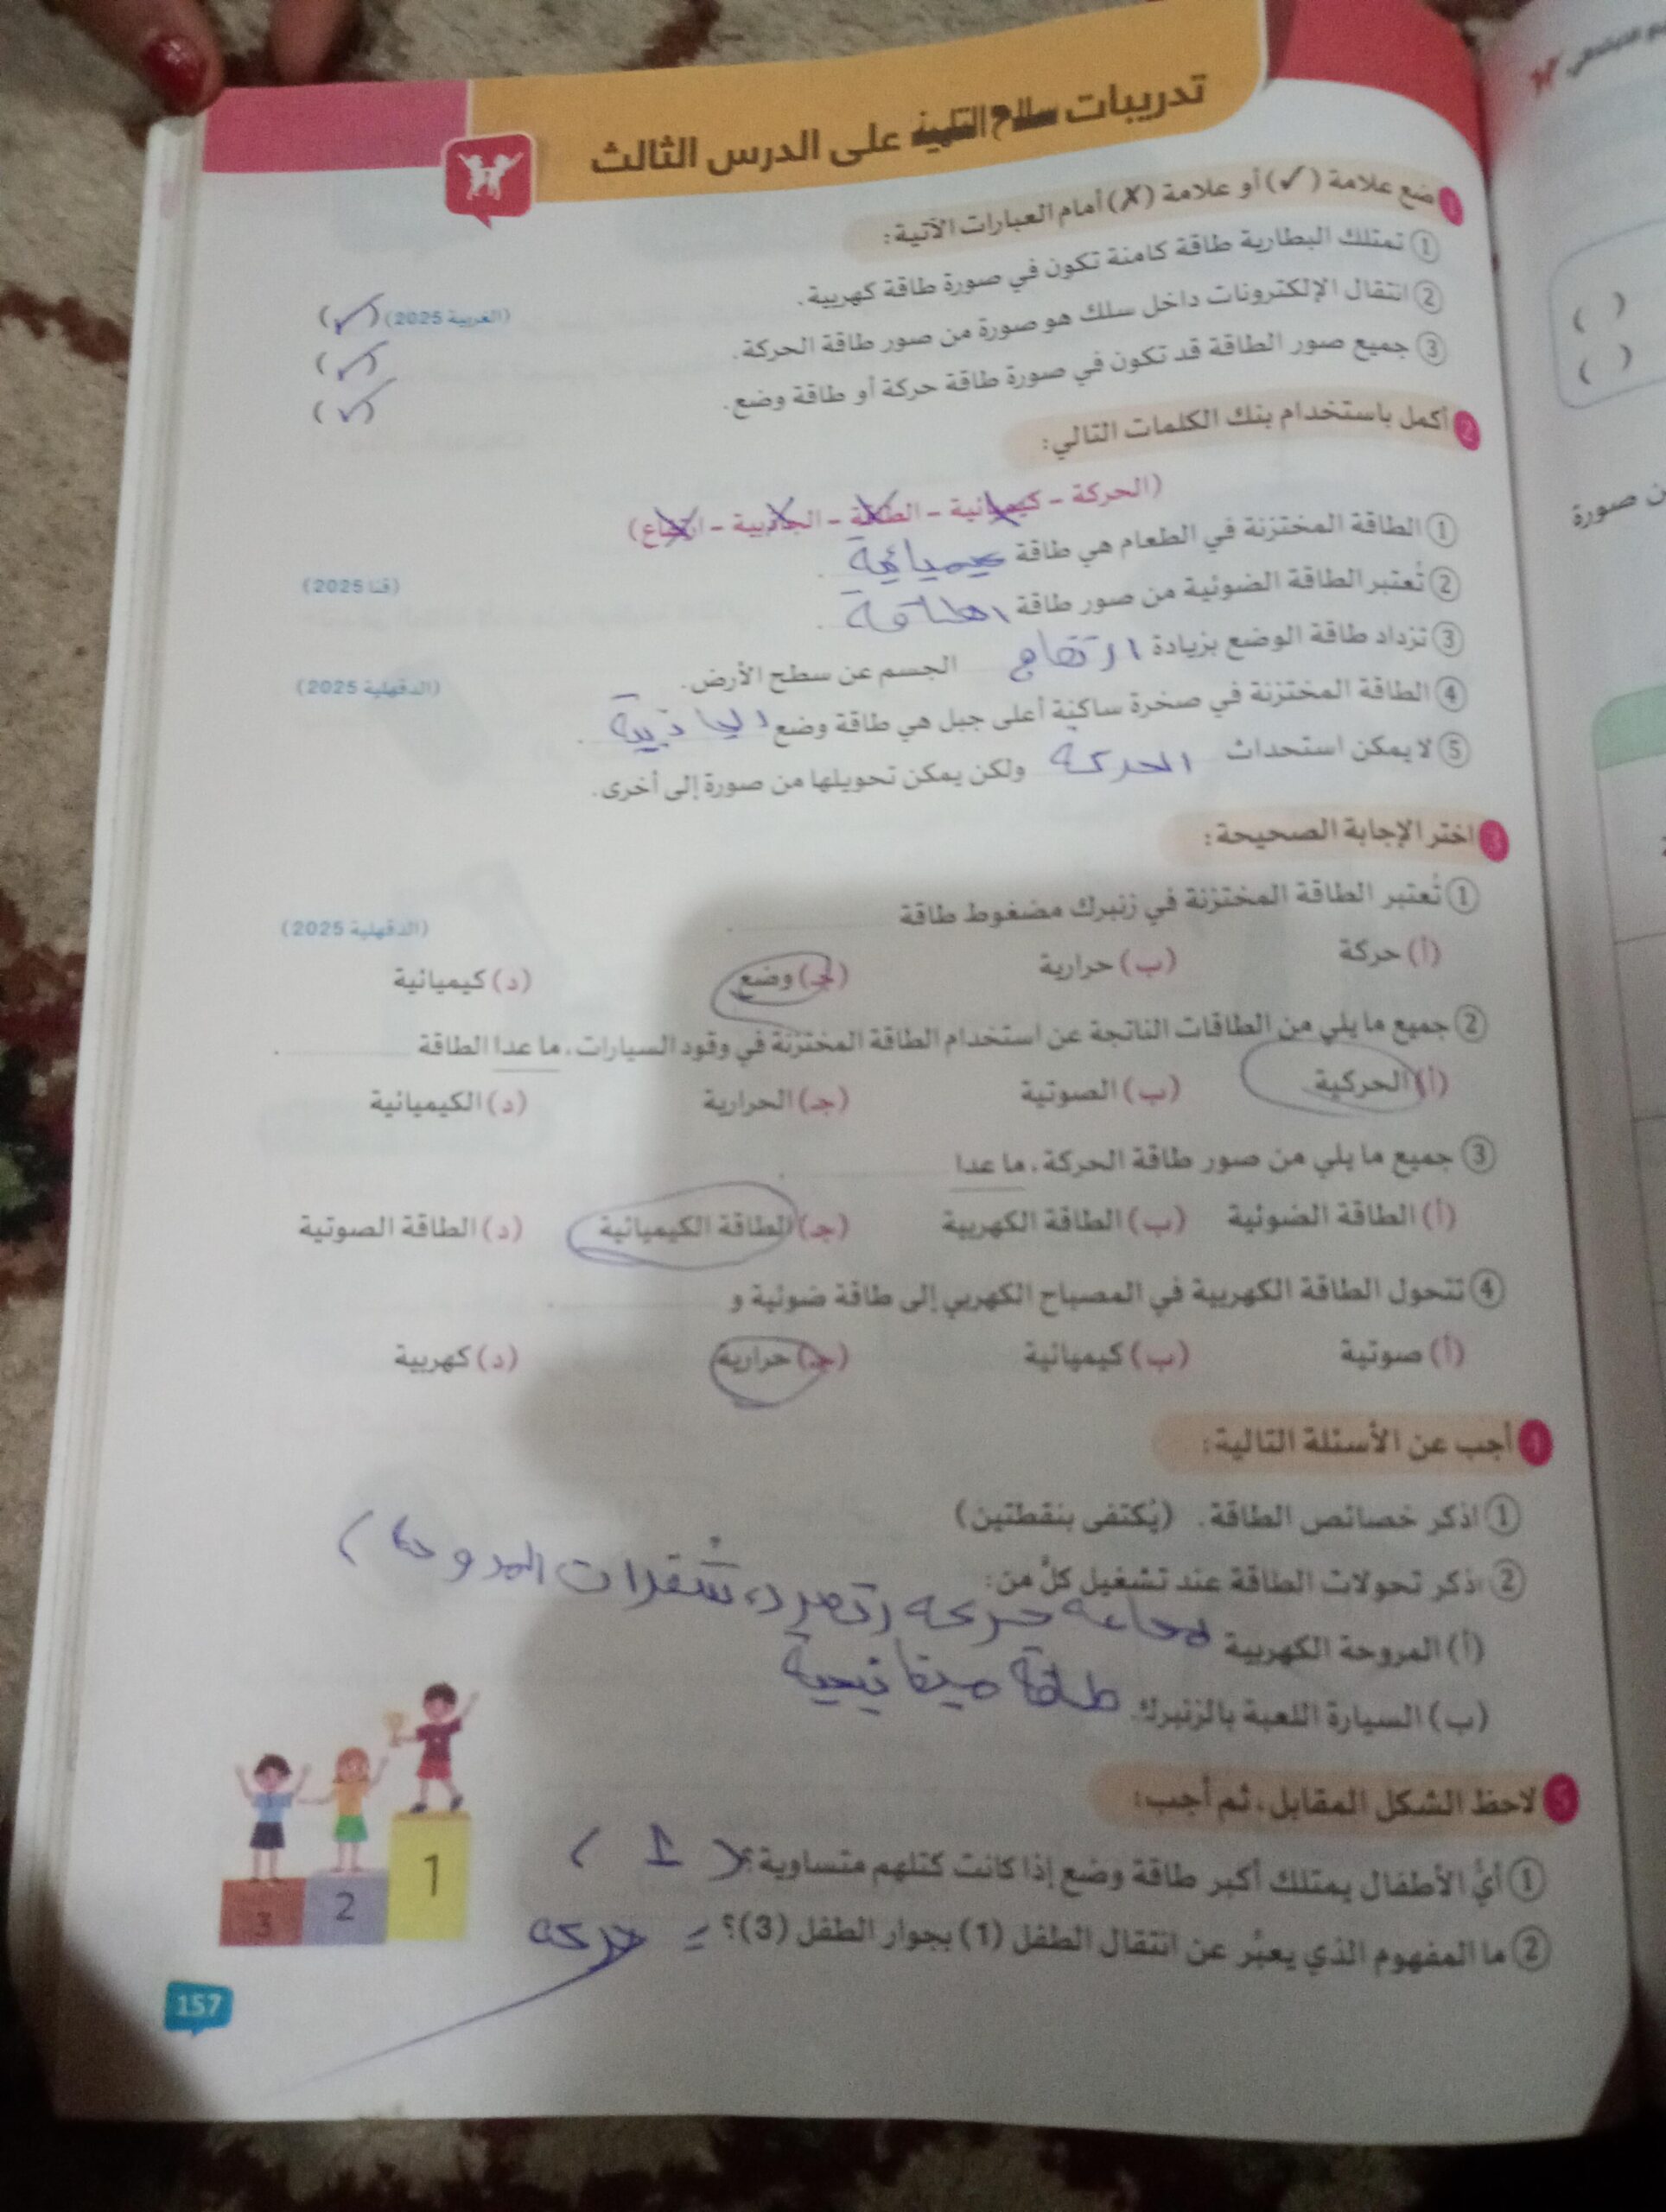 تدريبات سلاح التلميذ على الدرس الثالث
1 ضع علامة (✓) أو علامة (✗) أمام العبارات الآتية:
① تمتلك البطارية طاقة كامنة تكون في صورة طاقة كهربية. (الغربية 2025) (✓)
② انتقال الإلكترونات داخل سلك هو صورة من صور طاقة الحركة. (✓)
③ جميع صور الطاقة قد تكون في صورة طاقة حركة أو طاقة وضع. (✓)
2 أكمل باستخدام بنك الكلمات التالي:
(الحركة - كيميائية - الطاقة - الجاذبية - ارتفاع)
① الطاقة المختزنة في الطعام هي طاقة كيميائية.
② تُعتبر الطاقة الضوئية من صور طاقة الطاقة. (قنا 2025)
③ تزداد طاقة الوضع بزيادة ارتفاع الجسم عن سطح الأرض.
④ الطاقة المختزنة في صخرة ساكنة أعلى جبل هي طاقة وضع الجاذبية. (الدقهلية 2025)
⑤ لا يمكن استحداث الحركة ولكن يمكن تحويلها من صورة إلى أخرى.
3 اختر الإجابة الصحيحة:
① تُعتبر الطاقة المختزنة في زنبرك مضغوط طاقة (الدقهلية 2025)
(أ) حركة (ب) حرارية (جـ) وضع (د) كيميائية
② جميع ما يلي من الطاقات الناتجة عن استخدام الطاقة المختزنة في وقود السيارات، ما عدا الطاقة
(أ) الحركية (ب) الصوتية (جـ) الحرارية (د) الكيميائية
③ جميع ما يلي من صور طاقة الحركة، ما عدا
(أ) الطاقة الضوئية (ب) الطاقة الكهربية (جـ) الطاقة الكيميائية (د) الطاقة الصوتية
④ تتحول الطاقة الكهربية في المصباح الكهربي إلى طاقة ضوئية و
(أ) صوتية (ب) كيميائية (جـ) حرارية (د) كهربية
4 أجب عن الأسئلة التالية:
① اذكر خصائص الطاقة. (يُكتفى بنقطتين)
② اذكر تحولات الطاقة عند تشغيل كلٍّ من:
(أ) المروحة الكهربية حركة شفرات المروحة)
(ب) السيارة اللعبة بالزنبرك. طاقة ميكانيكية
5 لاحظ الشكل المقابل، ثم أجب:
① أيُّ الأطفال يمتلك أكبر طاقة وضع إذا كانت كتلهم متساوية؟ (1)
② ما المفهوم الذي يعبِّر عن انتقال الطفل (1) بجوار الطفل (3)؟ = حركة
1
2
3
157
ن صورة